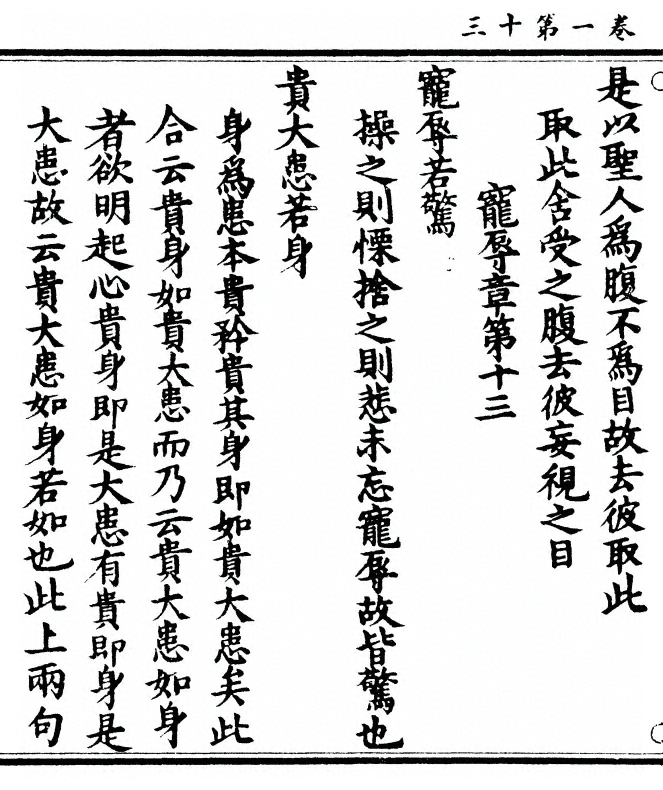 卷一第十三
是以聖人爲腹不爲目故去彼取此
取此含受之腹去彼妄視之目
寵辱章第十三
寵辱若驚
操之則慄捨之則悲未忘寵辱故皆驚也
貴大患若身
身爲患本貴矜貴其身即如貴大患矣此
合云貴身如貴大患而乃云貴大患如身
者欲明起心貴身即是大患有貴即身是
大患故云貴大患如身若如也此上兩句